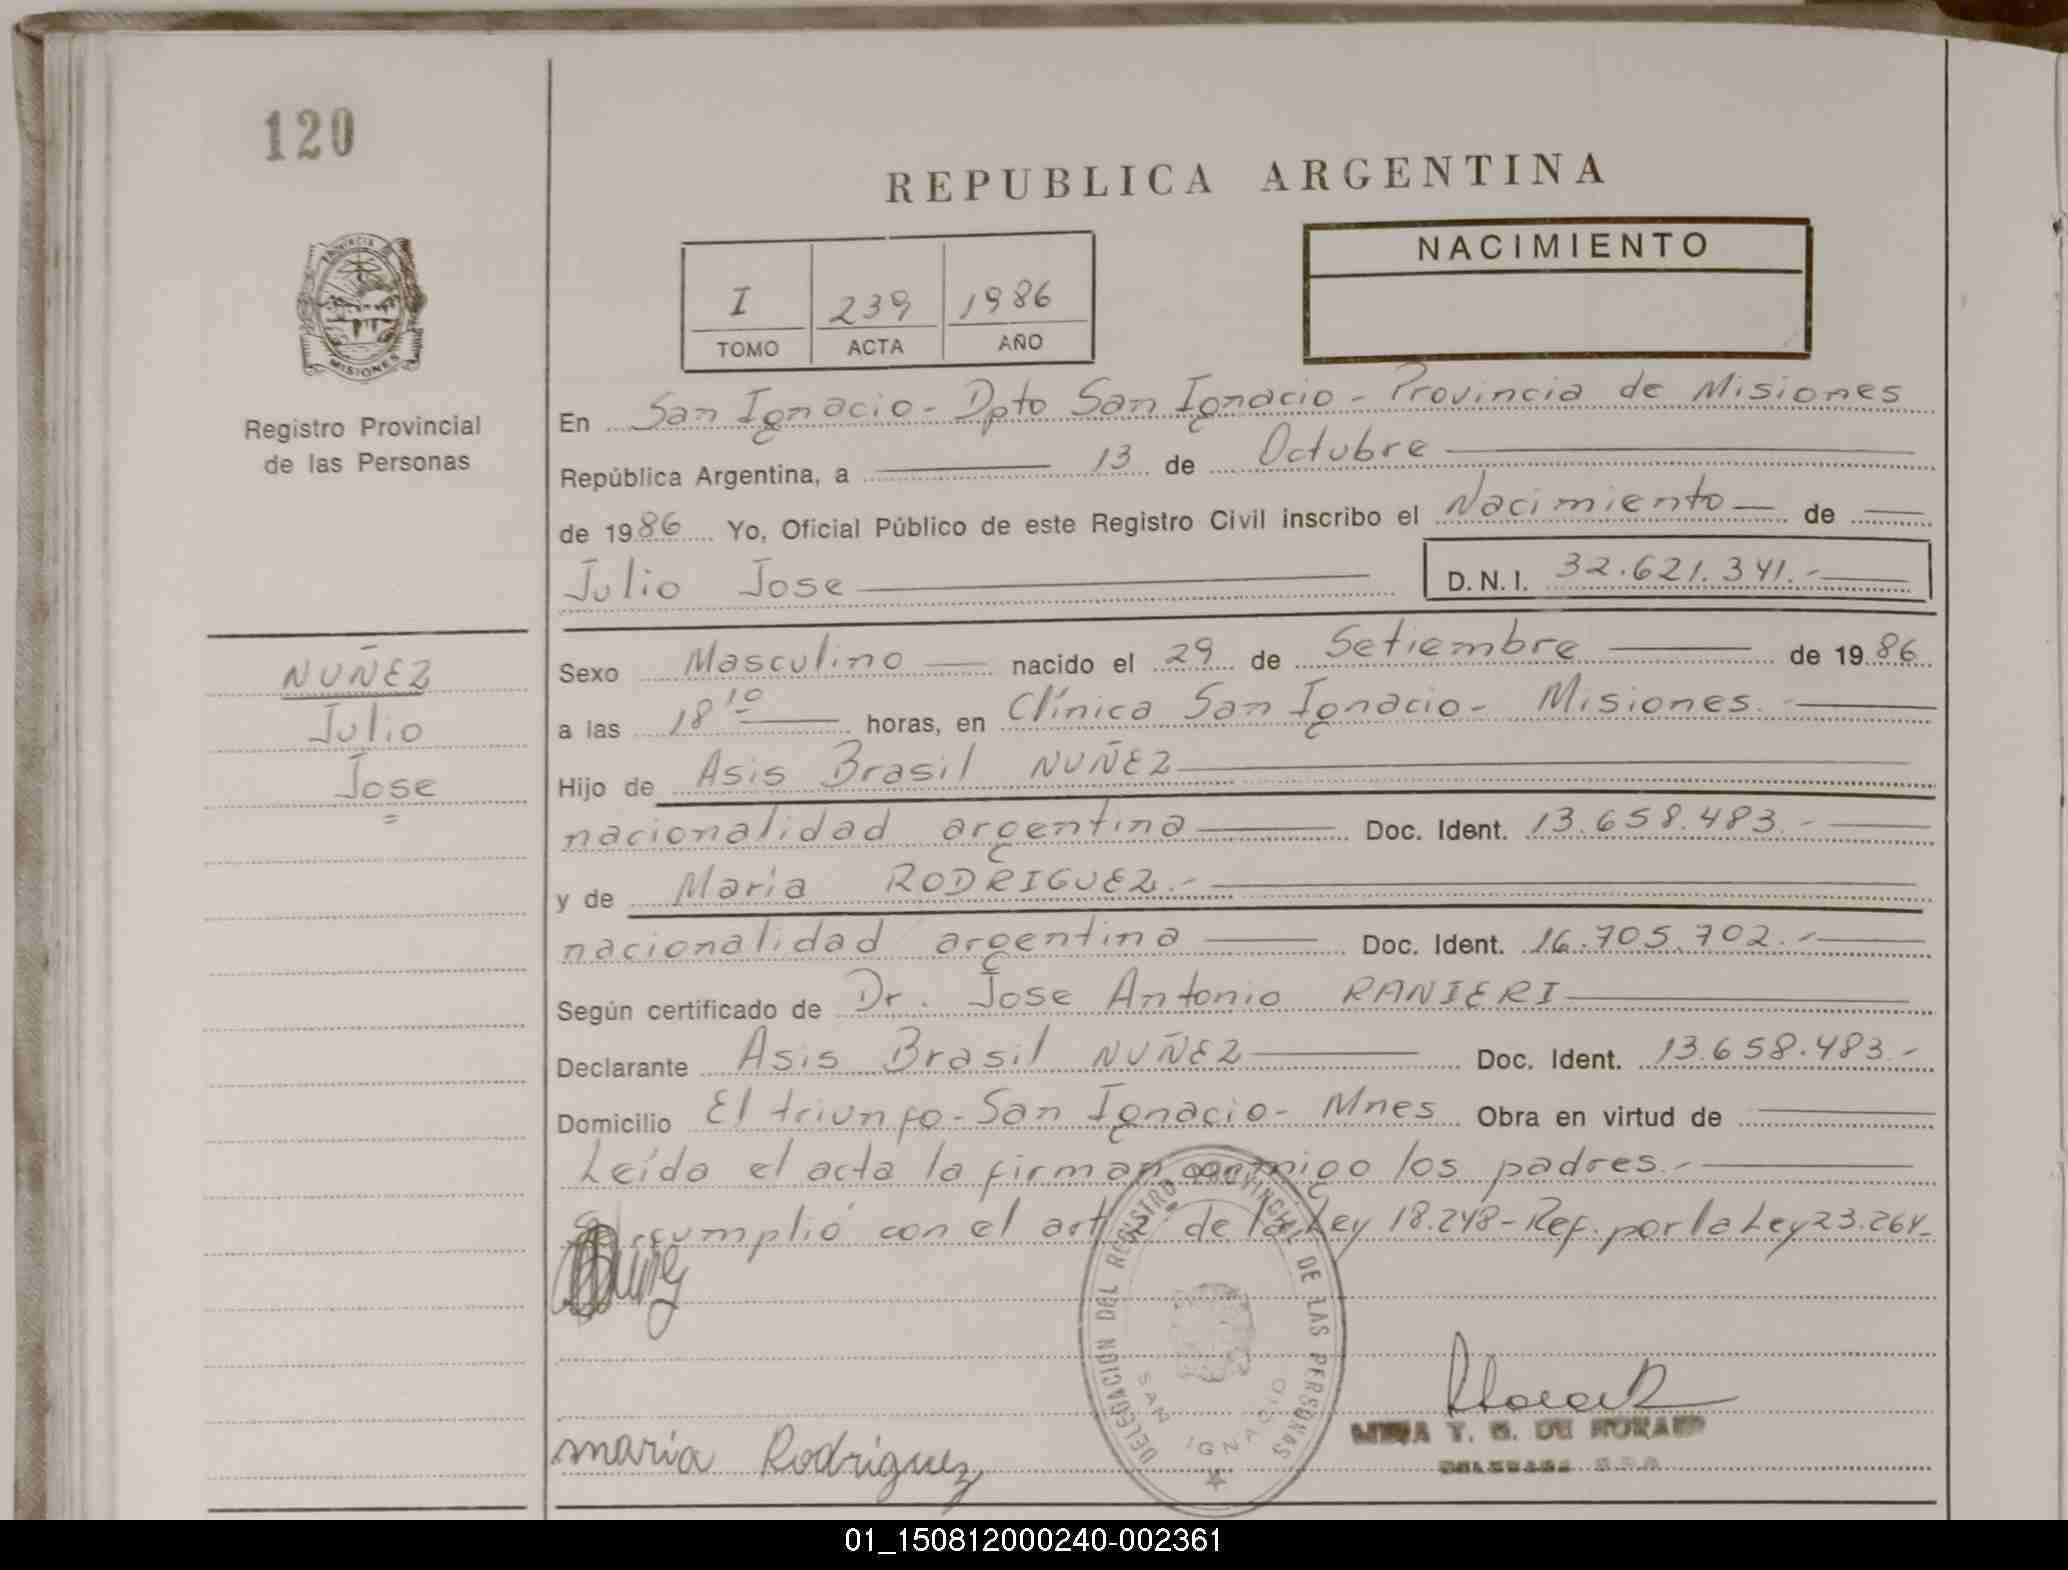 120
REPUBLICA ARGENTINA
NACIMIENTO
I 239 1986
TOMO ACTA AÑO
PROVINCIA
MISIONES
Registro Provincial
de las Personas
En San Ignacio - Dpto San Ignacio - Provincia de Misiones
República Argentina, a 13 de Octubre
de 1986 Yo, Oficial Público de este Registro Civil inscribo el Nacimiento de
Julio Jose D.N.I. 32.621.341.-
NUÑEZ
Julio
Jose
Sexo Masculino nacido el 29 de Setiembre de 1986
a las 18 10 horas, en Clínica San Ignacio - Misiones.
Hijo de Asis Brasil NUÑEZ
nacionalidad argentina Doc. Ident. 13.658.483.-
y de Maria RODRIGUEZ.-
nacionalidad argentina Doc. Ident. 16.705.702.-
Según certificado de Dr. Jose Antonio RANIERI
Declarante Asis Brasil NUÑEZ Doc. Ident. 13.658.483.-
Domicilio El triunfo - San Ignacio - Mnes Obra en virtud de
Leída el acta la firman conmigo los padres.-
Se cumplió con el art 2º de la Ley 18.248 - Ref. por la Ley 23.264-
DELEGACION DEL REGISTRO PROVINCIAL DE LAS PERSONAS
SAN IGNACIO
maria Rodriguez
T. G. DE
01_150812000240-002361